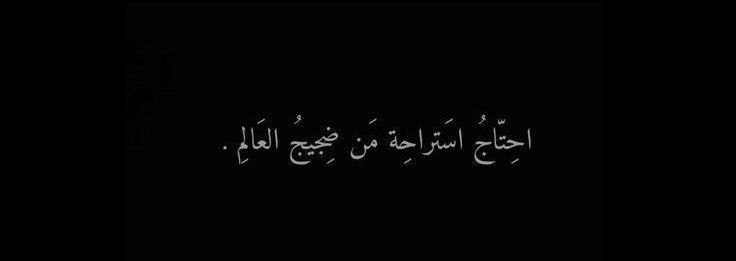 احِتّاجُ اسَتراحِة مَن ضِجيجُ العَالمِ .